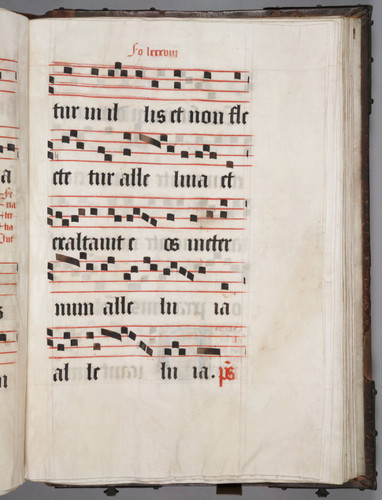 fo lxxxviii
tur in il lis et non fle
cte tur alle luia et
exaltauit e os in eter
num alle lu ia
al le lu ia. ps